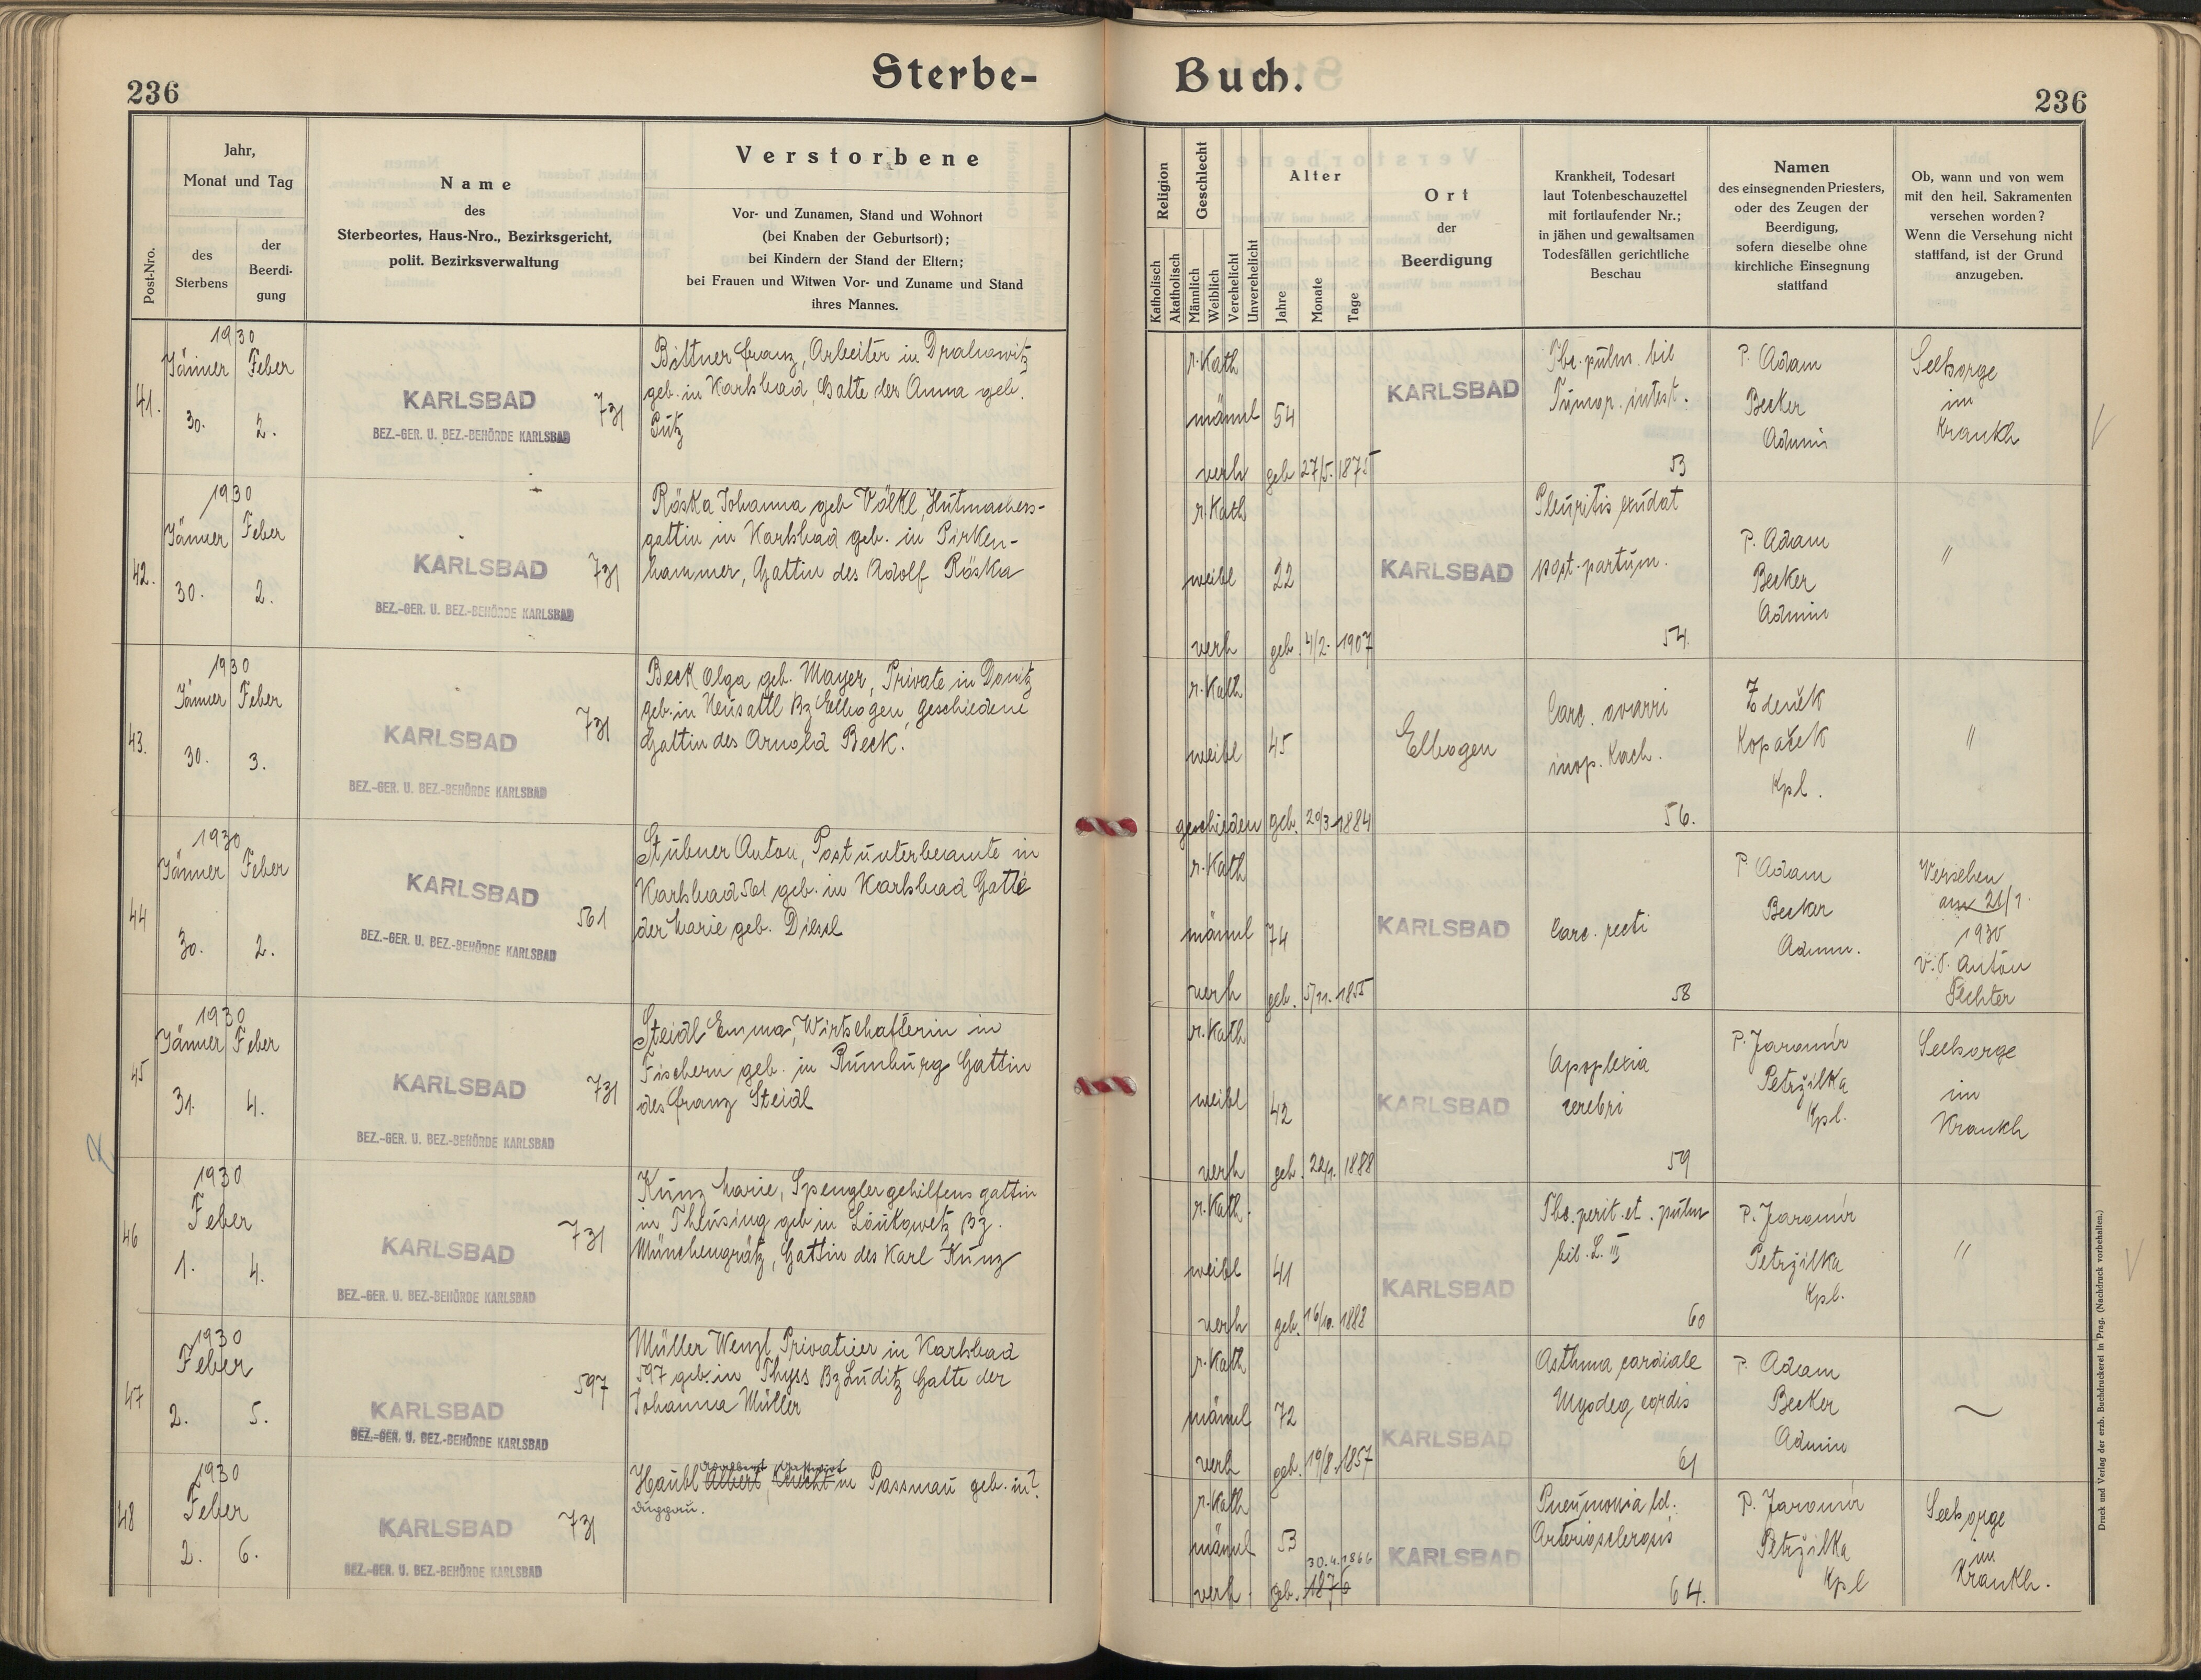 Sterbe-
Buch.
236
236
Post-Nro.
Jahr,
Monat und Tag
des
Sterbens
der
Beerdi-
gung
Name
des
Sterbeortes, Haus-Nro., Bezirksgericht,
polit. Bezirksverwaltung
Verstorbene
Vor- und Zunamen, Stand und Wohnort
(bei Knaben der Geburtsort);
bei Kindern der Stand der Eltern;
bei Frauen und Witwen Vor- und Zuname und Stand
ihres Mannes.
Religion
Katholisch
Akatholisch
Geschlecht
Männlich
Weiblich
Verehelicht
Unverehelicht
Alter
Jahre
Monate
Tage
Ort
der
Beerdigung
Krankheit, Todesart
laut Totenbeschauzettel
mit fortlaufender Nr.;
in jähen und gewaltsamen
Todesfällen gerichtliche
Beschau
Namen
des einsegnenden Priesters,
oder des Zeugen der
Beerdigung,
sofern dieselbe ohne
kirchliche Einsegnung
stattfand
Ob, wann und von wem
mit den heil. Sakramenten
versehen worden?
Wenn die Versehung nicht
stattfand, ist der Grund
anzugeben.
41.
1930
Jänner Feber
30. 2.
KARLSBAD
731
BEZ.-GER. U. BEZ.-BEHÖRDE KARLSBAD
Bittner Franz, Arbeiter in Drahowitz
geb. in Karlsbad, Gatte der Anna geb.
Pütz
r. Kath
männl 54
verh geb 27/5. 1875
KARLSBAD
Tbc. pulm. bil
Tumor. intest.
53
P. Adam
Becker
Admin
Seelsorge
im
Krankh
42.
1930
Jänner Feber
30. 2.
KARLSBAD
731
BEZ.-GER. U. BEZ.-BEHÖRDE KARLSBAD
Röska Johanna geb Völkl, Hutmachers-
gattin in Karlsbad geb. in Pirken-
hammer, Gattin des Adolf Röska
r. Kath
weibl 22
verh geb. 4/2. 1907
KARLSBAD
Pleuritis exudat
post. partum.
54.
P. Adam
Becker
Admin
"
43.
1930
Jänner Feber
30. 3.
KARLSBAD
731
BEZ.-GER. U. BEZ.-BEHÖRDE KARLSBAD
Beck Olga geb. Mayer, Private in Donitz
geb. in Neusattl Bz Elbogen, geschiedene
Gattin des Arnold Beck.
r. Kath
weibl 45
geschieden geb. 20/3 1884
Elbogen
Carc. ovarri
inop. Kach.
56.
Zdeněk
Kopaček
Kpl.
"
44
1930
Jänner Feber
30. 2.
KARLSBAD
561
BEZ.-GER. U. BEZ.-BEHÖRDE KARLSBAD
Stübner Anton, Postunterbeamte in
Karlsbad 561 geb. in Karlsbad Gatte
der Marie geb. Diesl
r. Kath
männl 74
verh geb. 5/11. 1855
KARLSBAD
Carc. recti
58
P. Adam
Becker
Admin.
Versehen
am 21/1.
1930
v. P. Anton
Fechter
45
1930
Jänner Feber
31. 4.
KARLSBAD
731
BEZ.-GER. U. BEZ.-BEHÖRDE KARLSBAD
Steidl Emma, Wirtschafterin in
Fischern geb. in Rumburg Gattin
des Franz Steidl
r. Kath
weibl 42
verh geb. 1888
KARLSBAD
Apoplexia
cerebri
59
P. Jaromir
Petržilka
Kpl.
Seelsorge
im
Krankh
46
1930
Feber
1. 4.
KARLSBAD
731
BEZ.-GER. U. BEZ.-BEHÖRDE KARLSBAD
Kunz Marie, Spenglergehilfensgattin
in Theusing geb in Loukowetz Bz.
Münchengrätz, Gattin des Karl Kunz
r. Kath.
weibl 41
verh geb. 16/10. 1888
KARLSBAD
Tbc. perit. et. pulm
bil. L. III
60
P. Jaromir
Petržilka
Kpl.
"
47
1930
Feber
2. 5.
KARLSBAD
597
BEZ.-GER. U. BEZ.-BEHÖRDE KARLSBAD
Müller Wenzl, Privatier in Karlsbad
597 geb. in Thyss Bz Luditz Gatte der
Johanna Müller
r. Kath
männl 72
verh geb. 19/8. 1857
KARLSBAD
Asthma cardiale
Myodeg cordis
61
P. Adam
Becker
Admin
48
1930
Feber
2. 6.
KARLSBAD
731
BEZ.-GER. U. BEZ.-BEHÖRDE KARLSBAD
Häubl Albert, Knecht in Passnau geb. in?
r. Kath
männl 53
30.4.1866
verh. geb. 1876
KARLSBAD
Pneumonia bil.
Arteriosclerosis
64.
P. Jaromir
Petržilka
Kpl
Seelsorge
im
Krankh.
Druck und Verlag der erzb. Buchdruckerei in Prag. (Nachdruck vorbehalten.)